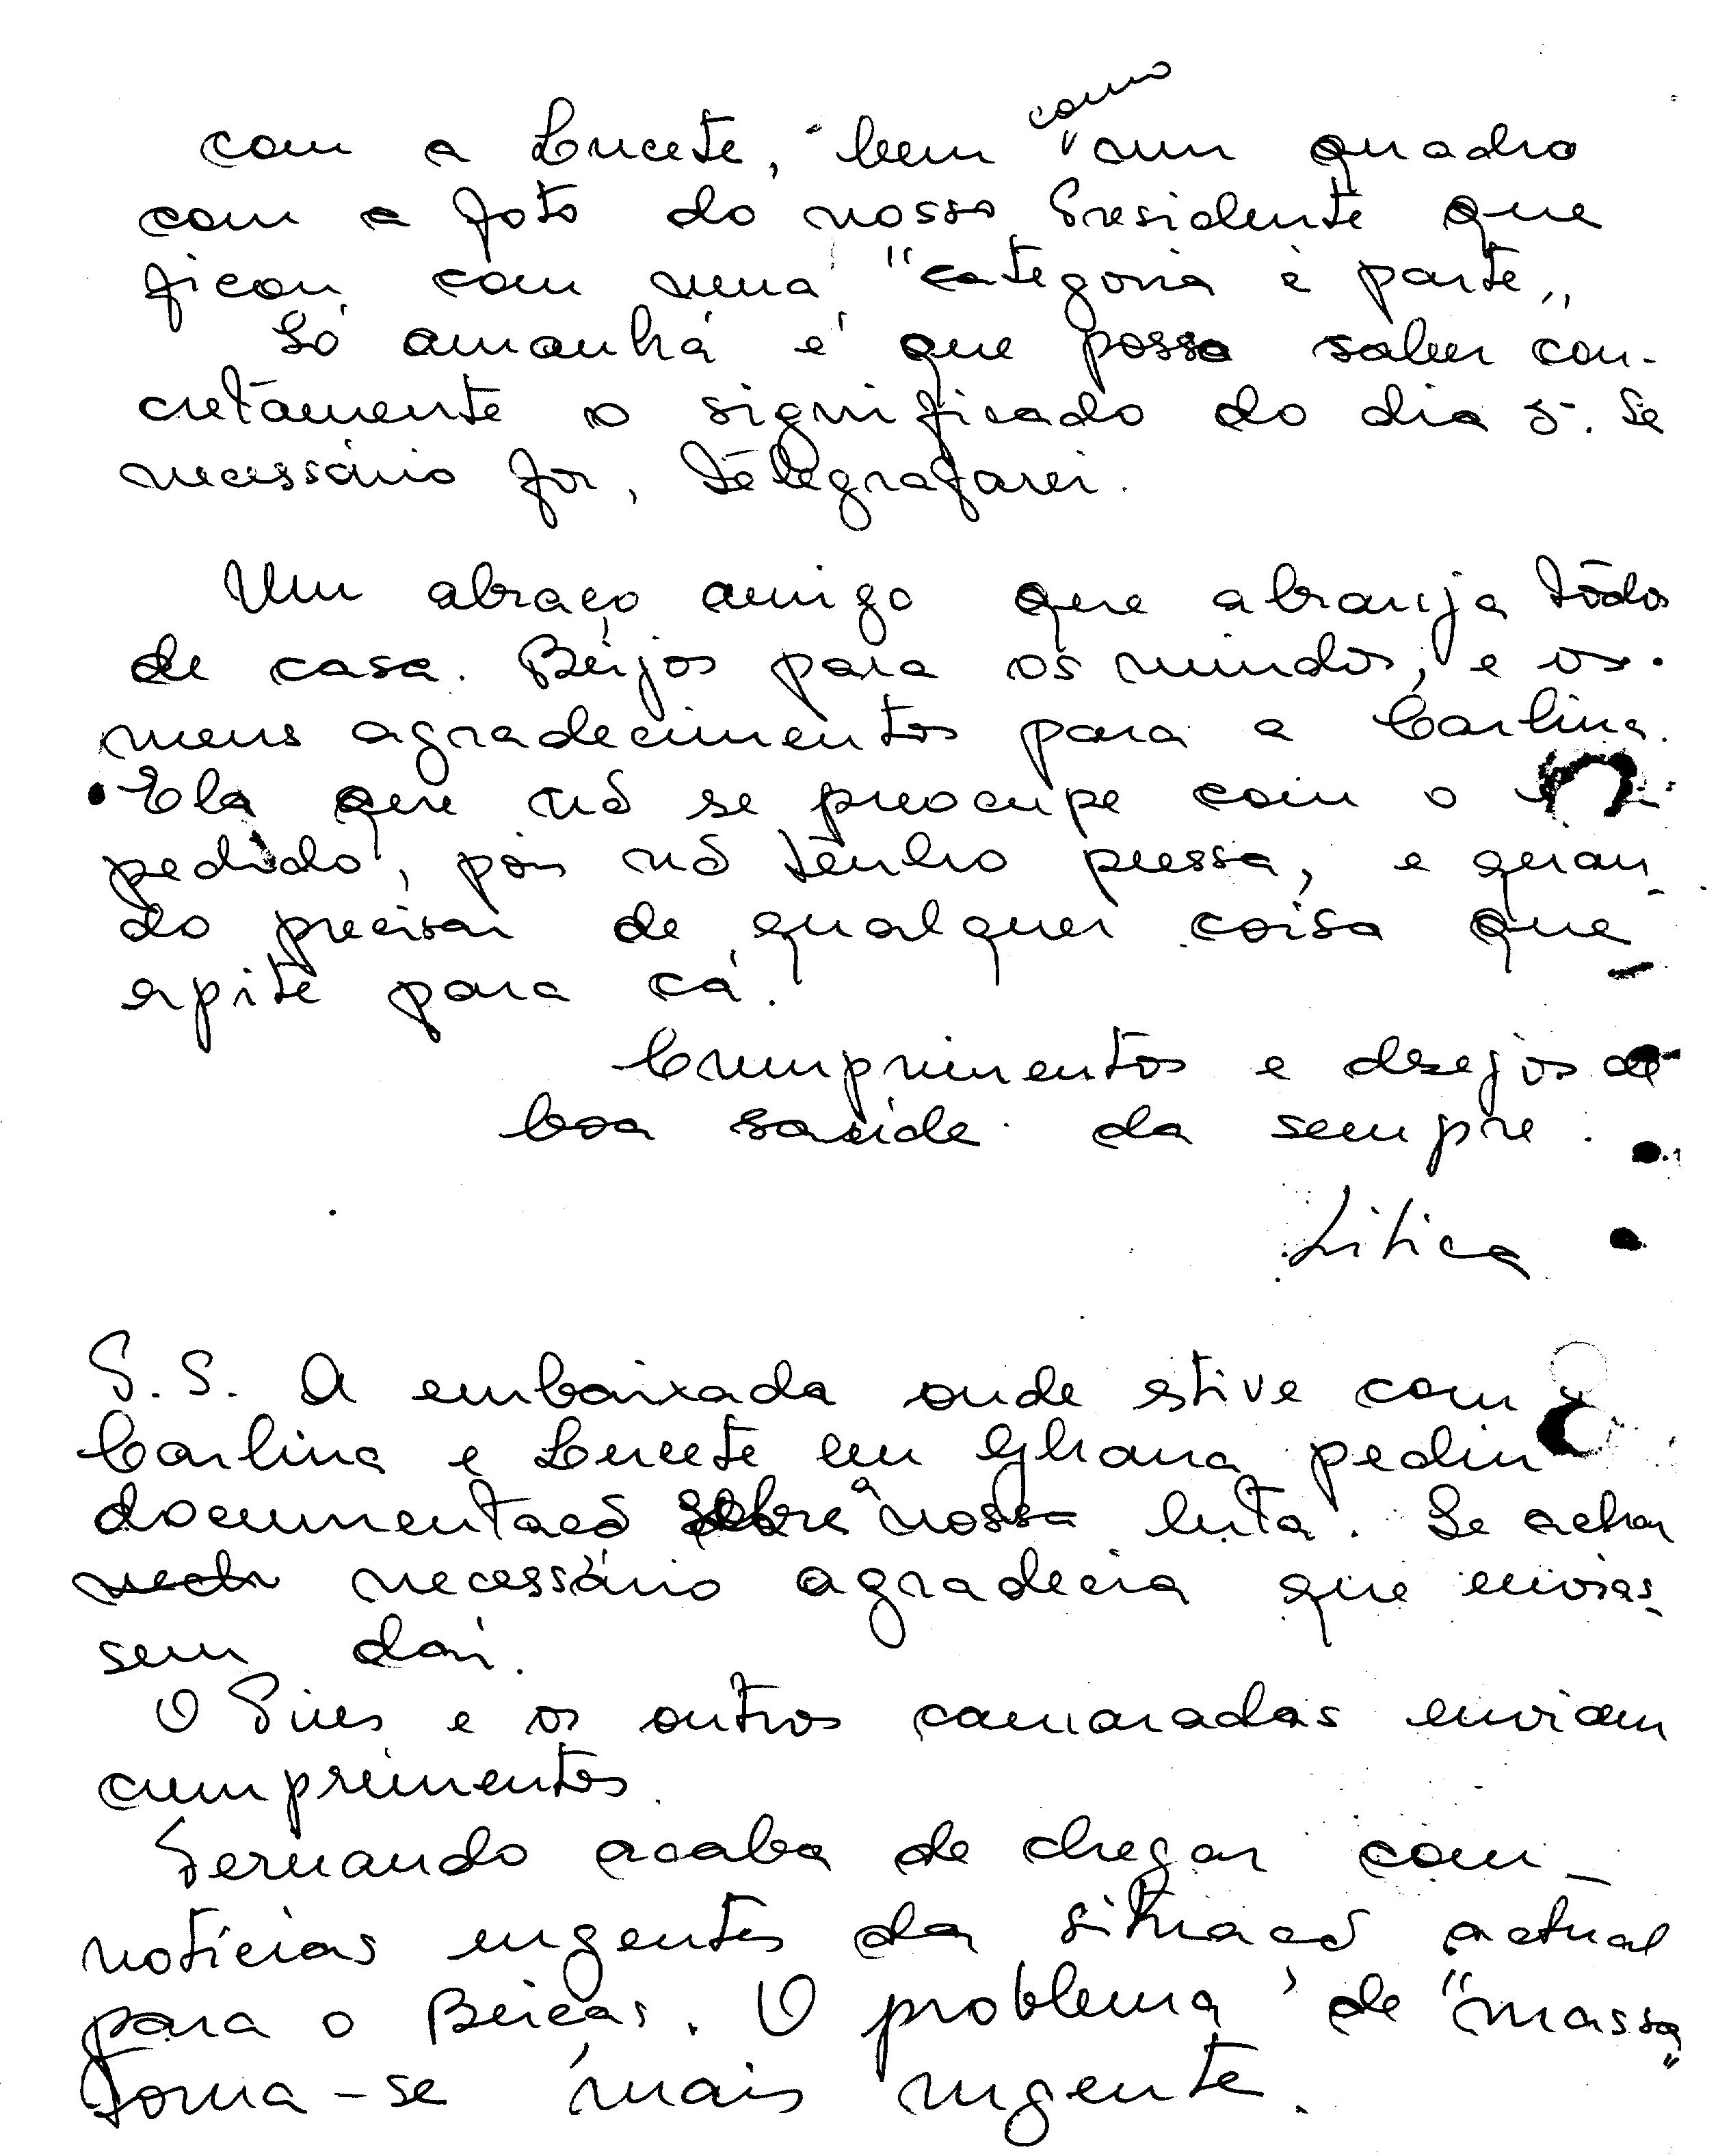 com a Lucete, bem como um quadro
com a foto do nosso Presidente que
ficou com uma "categoria à parte"
Só amanhã é que posso saber con-
cretamente o significado do dia 5. Se
necessário for, telegrafarei.
Um abraço amigo que abranja todos
de casa. Beijos para os miudos, e os
meus agradecimentos para a Carlina.
Ela que nõ se preocupe com o
pedido, pois nõ tenho pressa, e quan
do precisar de qualquer coisa que
apite para cá.
Cumprimentos e desejos de
boa saúde da sempre
Litica
P.S. A embaixada onde estive com
Carlina e Lucete em Ghana pediu
documentaçõ sobre a nossa luta. Se achar
necessário agradecia que envias-
sem daí.
O Pires e os outros camaradas enviam
cumprimentos.
Fernando acaba de chegar com
notícias urgentes da situaçõ actual
para o Beiças. O problema de "massa"
torna-se mais urgente.